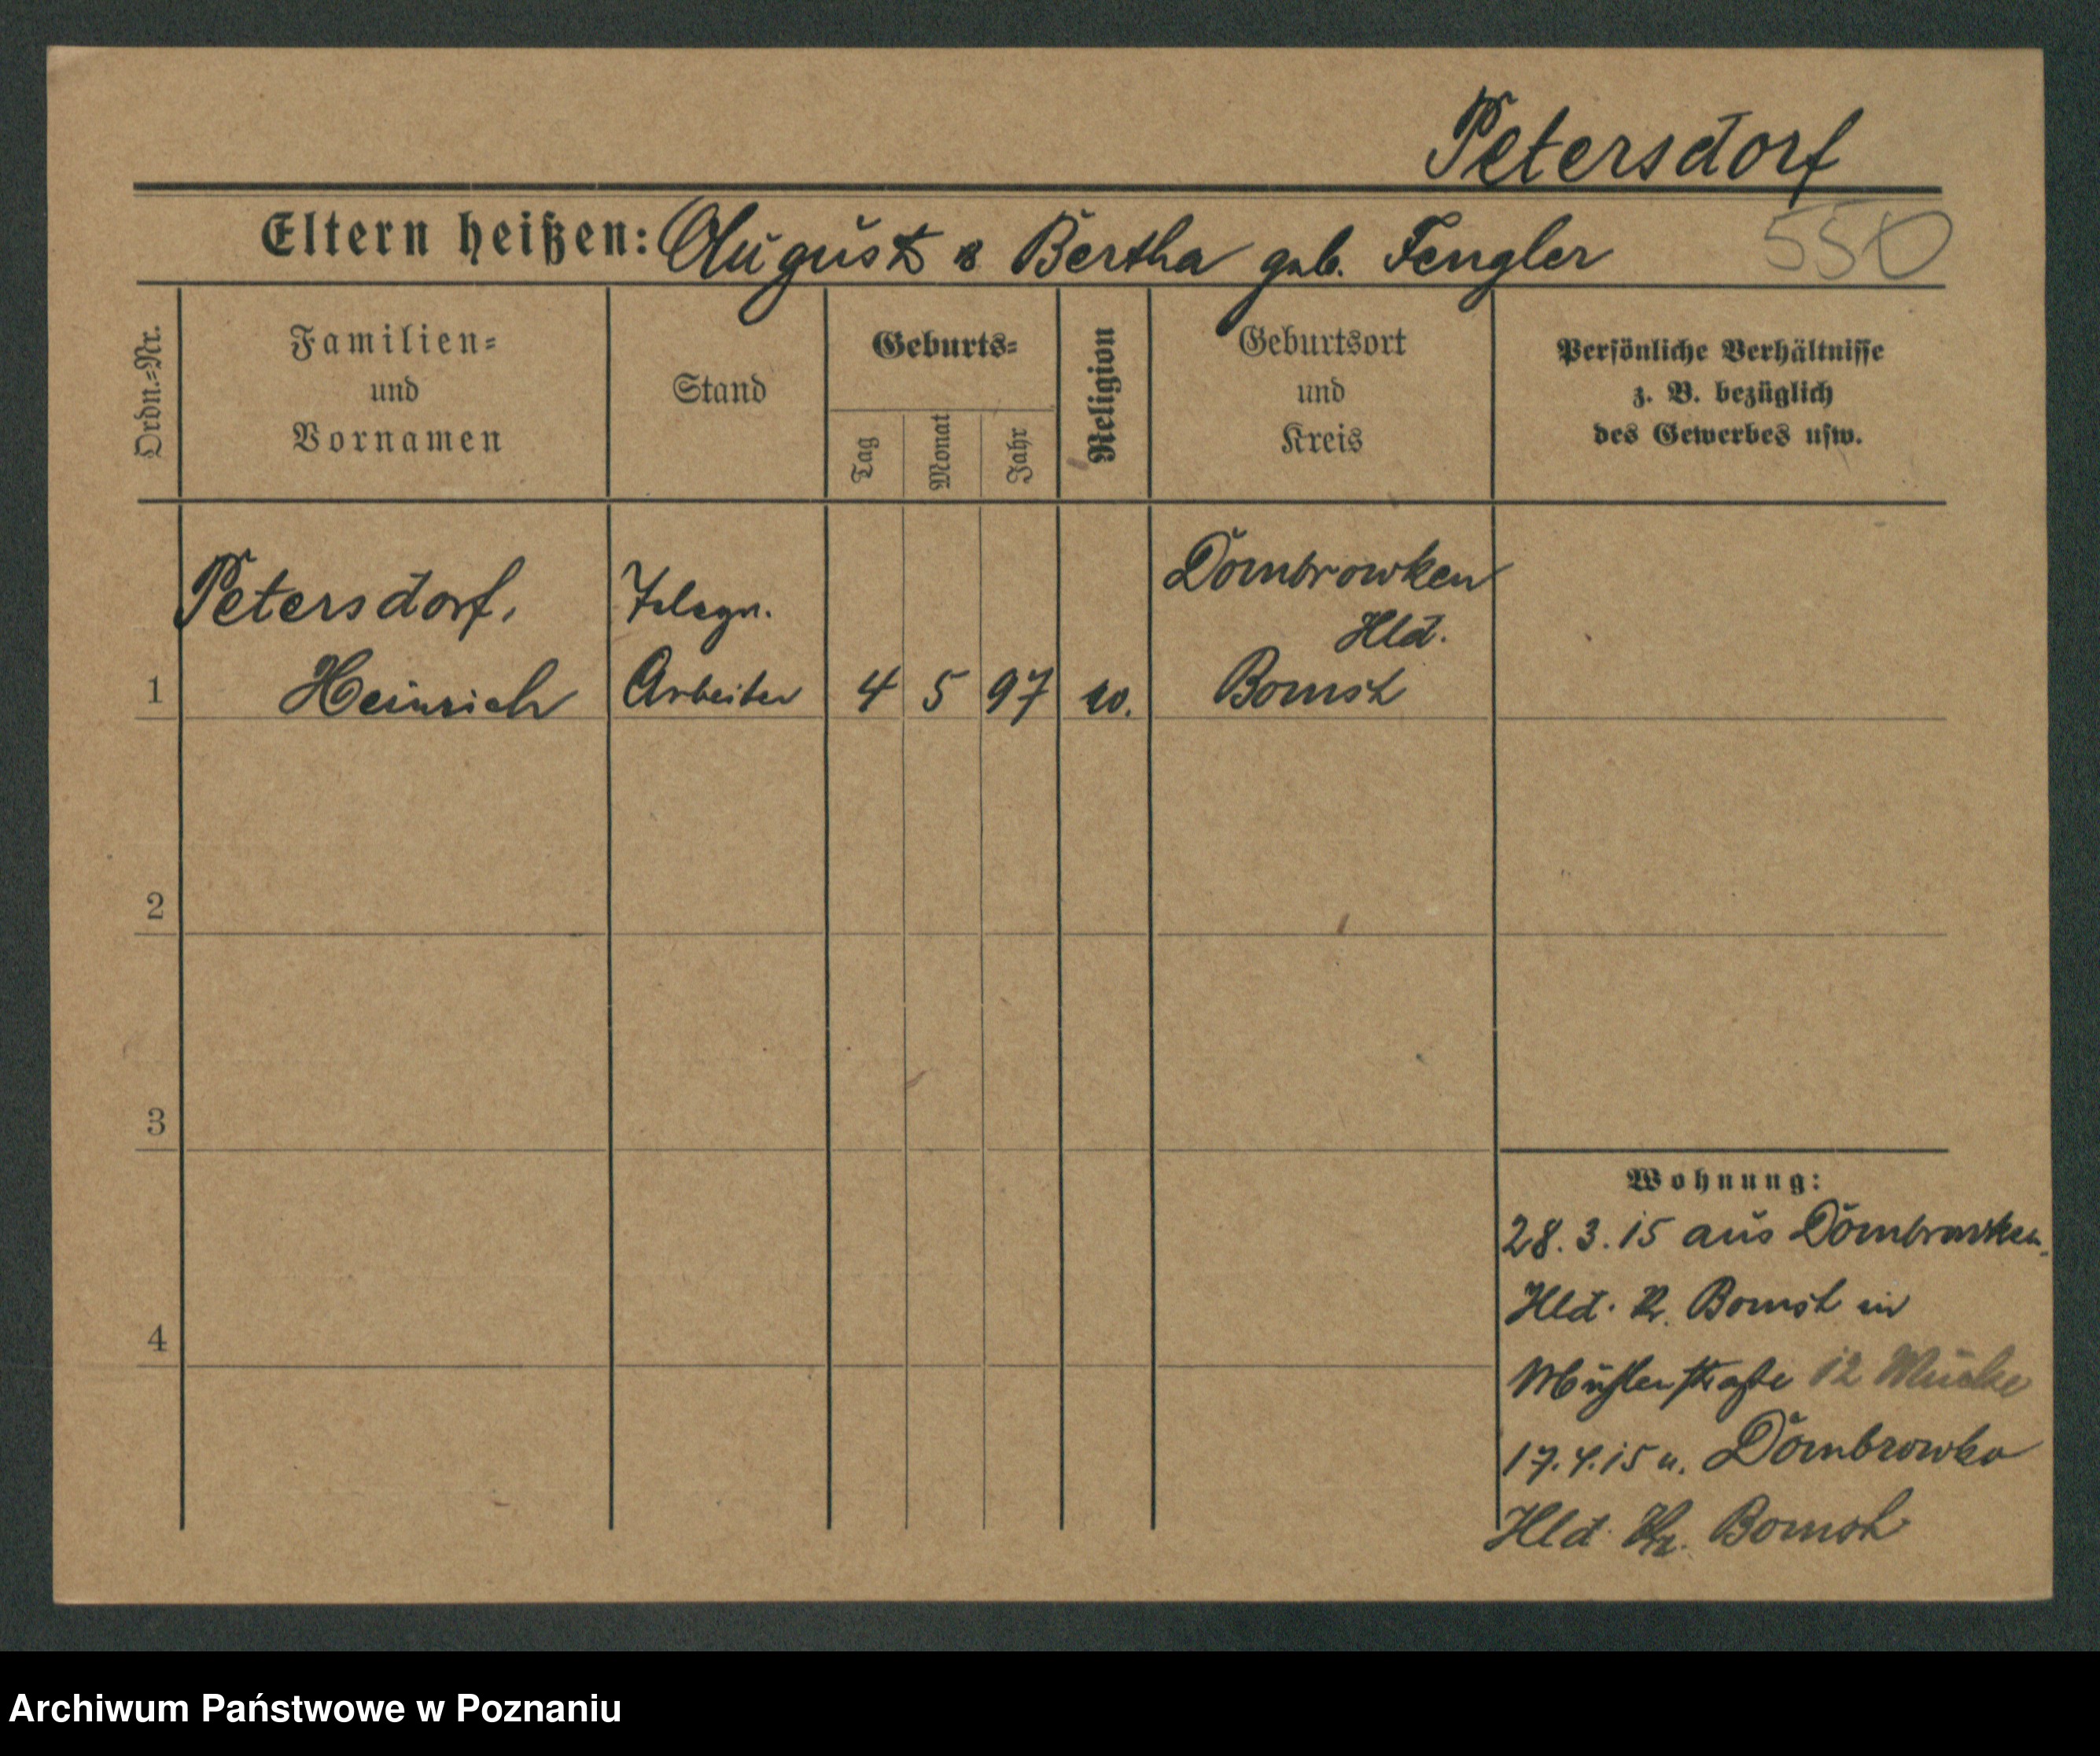 Petersdorf
Eltern heißen: August & Bertha geb. Fengler 550
Ordn.=Nr.
Familien=
und
Vornamen
Stand
Geburts=
Tag
Monat
Jahr
Religion
Geburtsort
und
Kreis
Persönliche Verhältnisse
z. B. bezüglich
des Gewerbes usw.
Petersdorf, Telegr. Dombrowken
Hld.
1 Heinrich Arbeiter 4 5 97 Bomst
2
3
4
Wohnung:
28.3.15 aus Dombrowken
Hld. Kr. Bomst in
12
17.4.15 n. Dombrowko
Hld Kr. Bomst
Archiwum Państwowe w Poznaniu